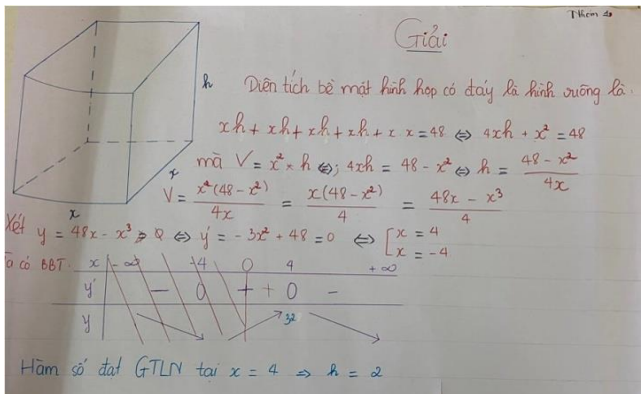 Nhóm 2
Giải
h
Diện tích bề mặt hình hộp có đáy là hình vuông là.
xh + xh + xh + xh + x x = 48 ⇔ 4xh + x² = 48
mà V = x² × h ⇔; 4xh = 48 - x² ⇔ h = \frac{48 - x²}{4x}
x
x
V = \frac{x²(48 - x²)}{4x} = \frac{x(48 - x²)}{4} = \frac{48x - x³}{4}
Xét y = 48x - x³ ⇔ y' = -3x² + 48 = 0 ⇔ [x = 4
x = -4
Ta có BBT. x -∞ -4 0 4 +∞
y' - 0 + + 0 -
y 32
Hàm số đạt GTLN tại x = 4 ⇒ h = 2